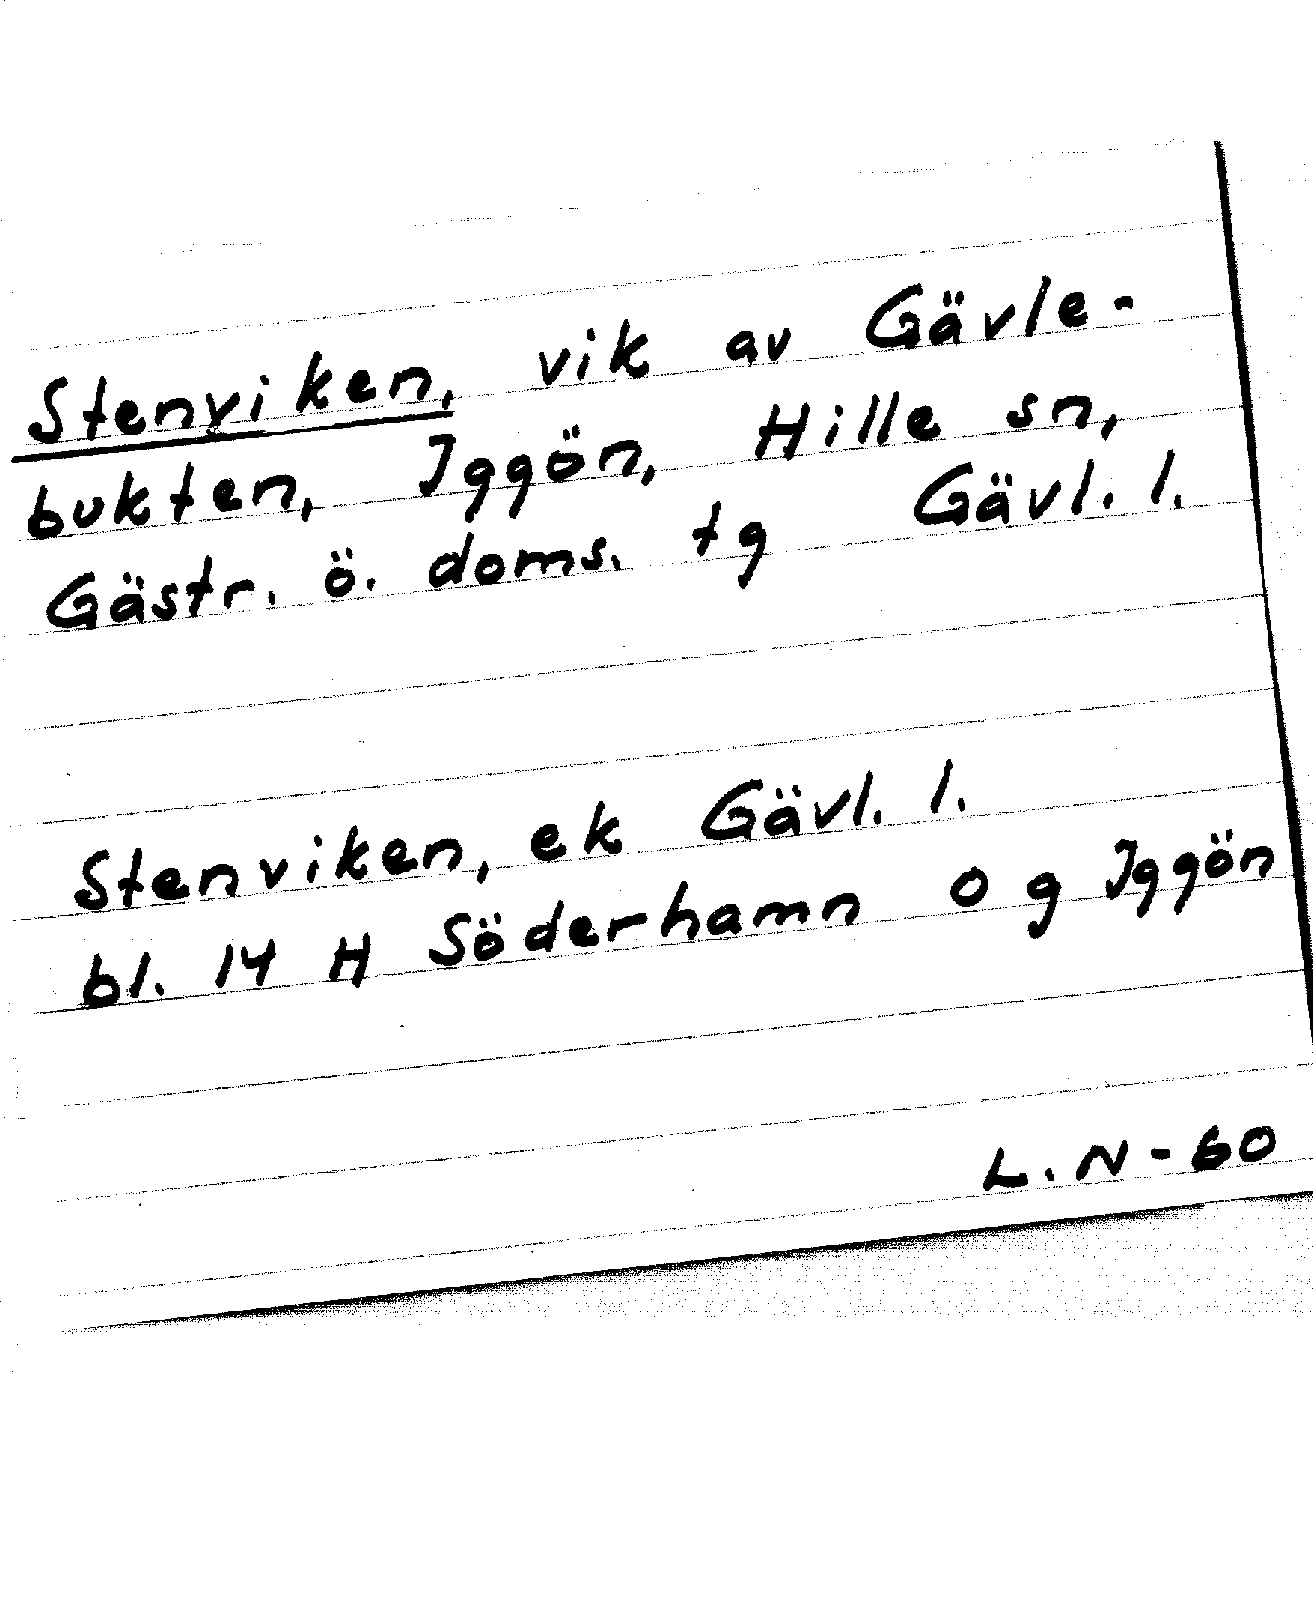 Stenviken, vik av Gävle-
bukten, Iggön, Hille sn,
Gästr. ö. doms. tg Gävl. l.
Stenviken, ek Gävl. l.
bl. 14 H Söderhamn 0 g Iggön
L. N - 60